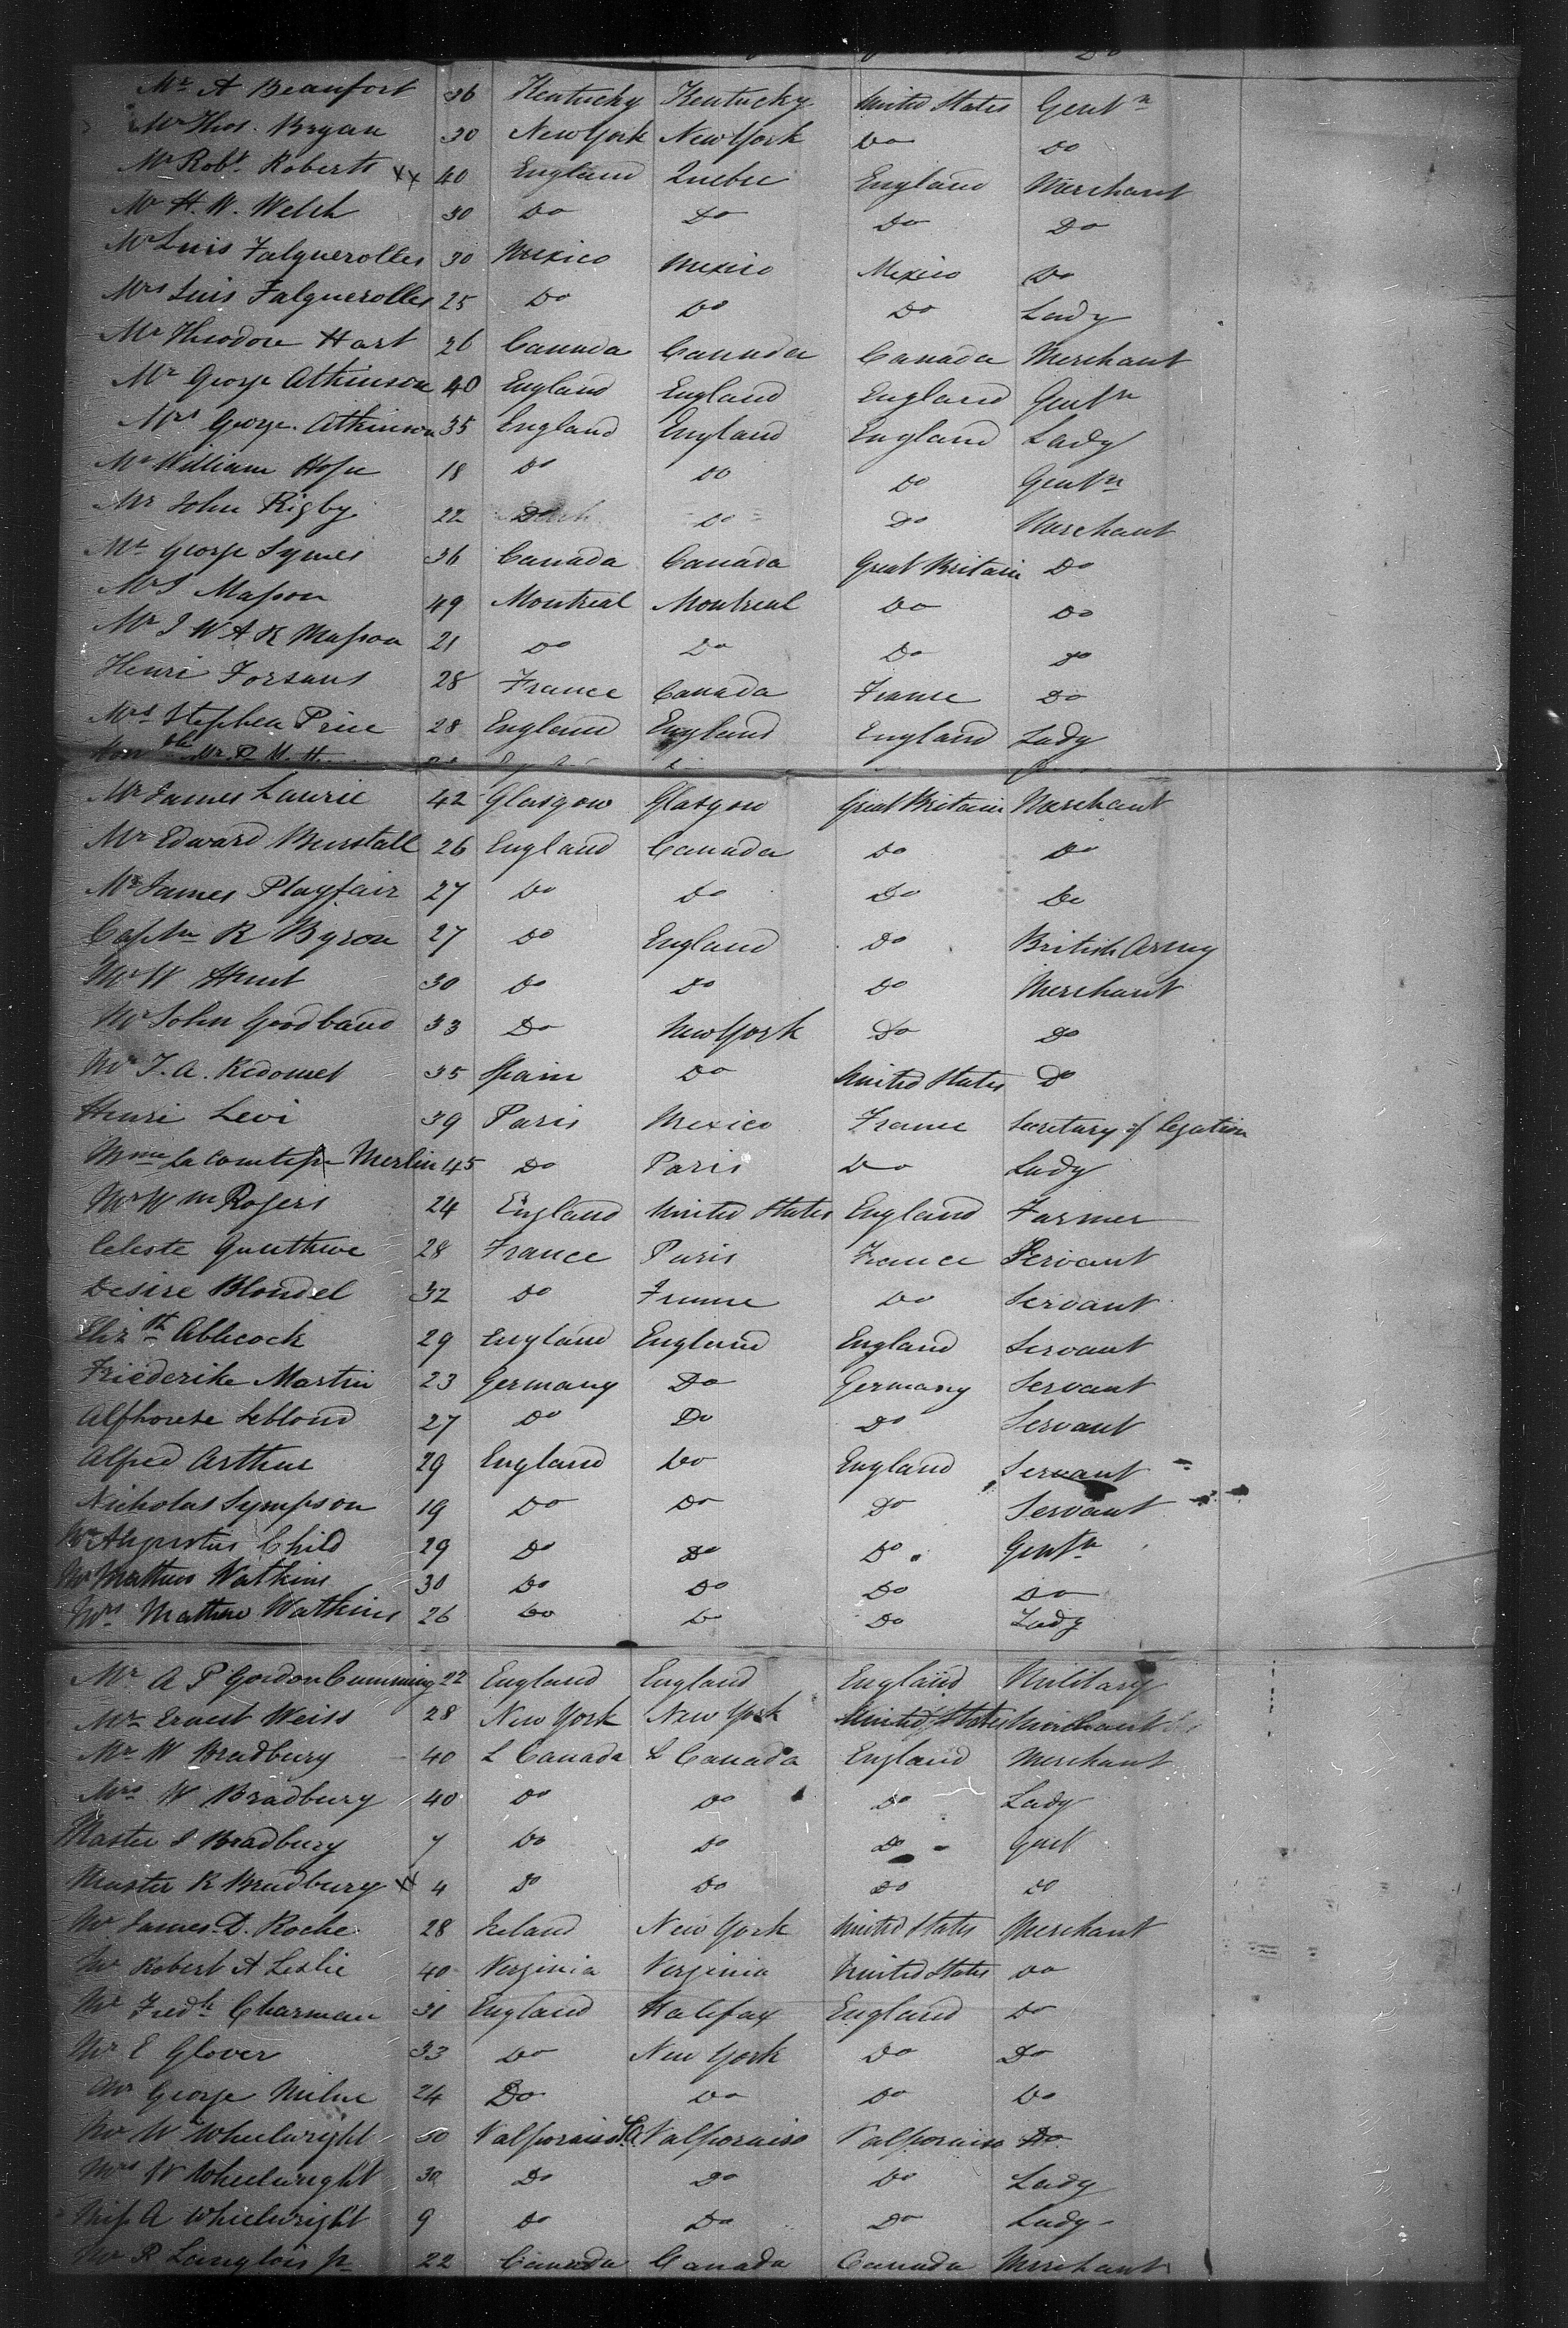 Do
Mr A Beaufort 36 Kentucky Kentucky United States Gentn
Mr Thos. Bryan 30 New York New York Do Do
Mr Robt. Roberts xx 40 England Quebec England Merchant
Mr H. W. Welsh 30 Do Do Do Do
Mr Luis Falguerolles 30 Mexico Mexico Mexico Do
Mrs Luis Falguerolles 25 Do Do Do Lady
Mr Theodore Hart 26 Canada Canada Canada Merchant
Mr George Atkinson 40 England England England Gentn
Mrs George Atkinson 35 England England England Lady
Mr William Hope 18 Do Do Do Gentn
Mr John Rigby 22 Do Do Do Merchant
Mr George Symes 36 Canada Canada Great Britain Do
Mr J Masson 49 Montreal Montreal Do Do
Mr J W A R Masson 21 Do Do Do Do
Henri Forsans 28 France Canada France Do
Mrs Stephen Price 28 England England England Lady
Mr James Laurie 42 Glasgow Glasgow Great Britain Merchant
Mr Edward Burstall 26 England Canada Do Do
Mr James Playfair 27 Do Do Do Do
Captn R Byron 27 Do England Do British Army
Mr W Hunt 30 Do Do Do Merchant
Mr John Goodband 33 Do New York Do Do
Mr F. A. 35 Spain Do United States Do
Henri Levi 39 Paris Mexico France Secretary of Legation
Mme La Comtesse Merlin 45 Do Paris Do Lady
Mr Wm Rogers 24 England United States England Farmer
Celeste 28 France Paris France Servant
Desire Blondel 32 Do France Do Servant
Elizth Ablecock 29 England England England Servant
Friederike Martin 23 Germany Do Germany Servant
Alphonse Leblond 27 Do Do Do Servant
Alfred Arthur 29 England Do England Servant
Nicholas Sympson 19 Do Do Do Servant
Mr Augustus Child 29 Do Do Do Gentn
Mr Mathew Watkins 30 Do Do Do Do
Mrs Mathew Watkins 26 Do Do Do Lady
Mr A P Gordon Cumming 22 England England England Military
Mr Ernest Weiss 28 New York New York United States Merchant
Mr W Bradbury 40 L Canada L Canada England Merchant
Mrs W Bradbury 40 Do Do Do Lady
Master J Bradbury 7 Do Do Do Gent
Master R Bradbury xx 4 Do Do Do Do
Mr James D. Roche 28 Ireland New York United States Merchant
Mr Robert A Leslie 40 Verginia Verginia United States Do
Mr Fredk Charman 31 England Halifax England Do
Mr E Glover 33 Do New York Do Do
Mr George Milne 24 Do Do Do Do
Mr W Wheelwright 50 Valporaiso Valporaiso Valporaiso Do
Mrs W Wheelwright 30 Do Do Do Lady
Miss A Wheelwright 9 Do Do Do Lady
Mr P Langlois Jr 22 Canada Canada Canada Merchant